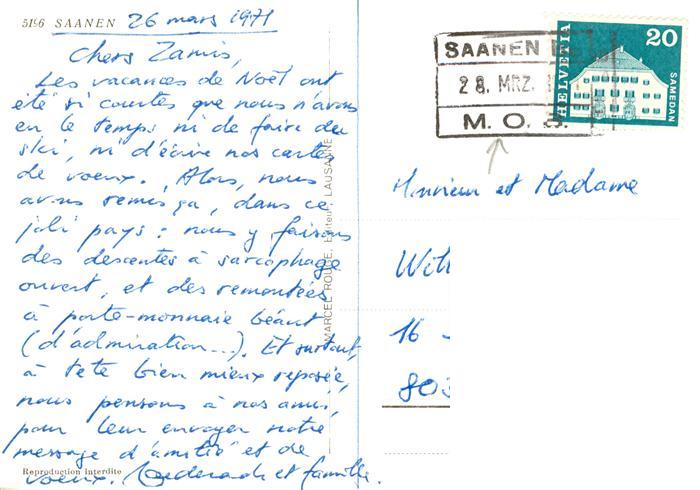 5196 SAANEN 26 mars 1971
Chers Zamis,
Les vacances de Noël ont
été si courtes que nous n'avons
eu le temps ni de faire du
ski, ni d'écrire nos cartes
de voeux. Alors, nous
avons remis ça, dans ce
joli pays : nous y faisons
des descentes à sarcophage
ouvert, et des remontées
à porte-monnaie béant
(d'admiration...). Et surtout,
à tête bien mieux reposée,
nous pensons à nos amis,
pour leur envoyer notre
message d'amitié et de
voeux. et famille.
Reproduction interdite
MARCEL ROUGE, Editeur, LAUSANNE
SAANEN
28. MRZ.
M. O.
HELVETIA
20
SAMEDAN
Monsieur et Madame
16
803